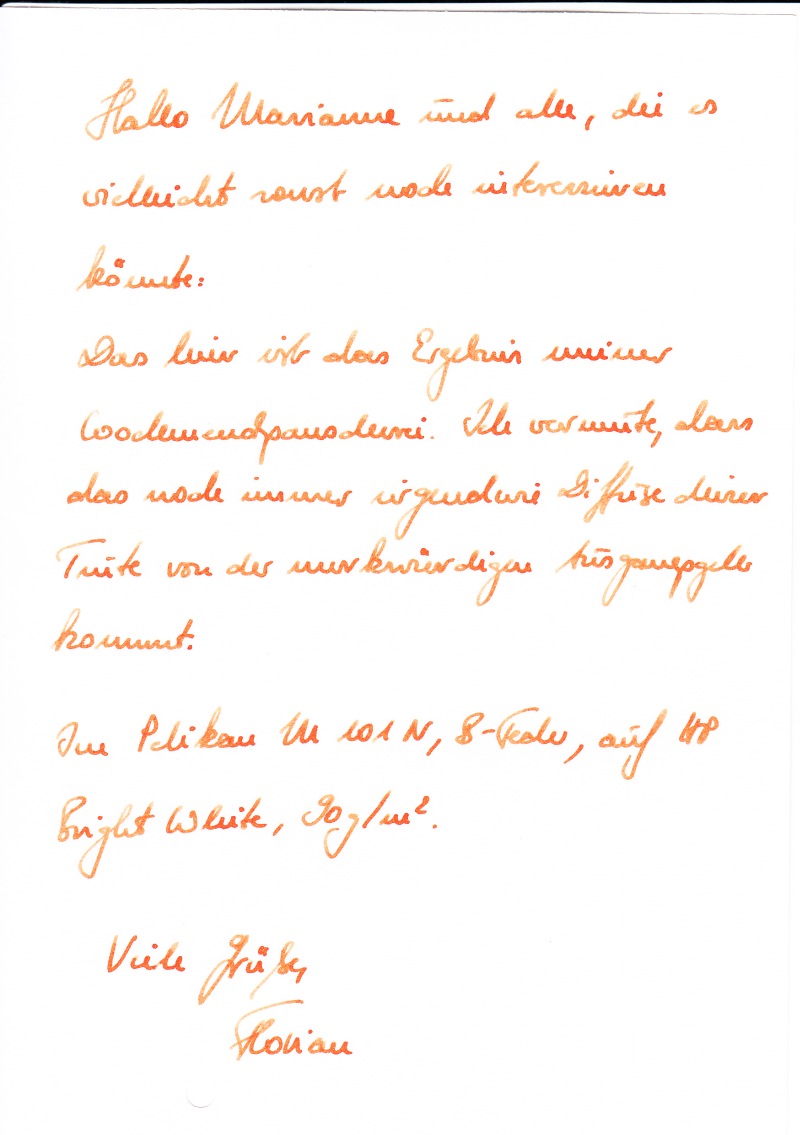 Hallo Marianne und alle, die es
vielleicht sonst noch interessieren
könnte:
Das hier ist das Ergebnis meiner
Ich vermute, dass
das noch immer irgendwie Diffuse deiner
Tinte von der merkwürdigen
kommt.
Im Pelikan M 101 N, B-Feder, auf HP
Bright White, 90g/m².
Viele Grüße,
Florian